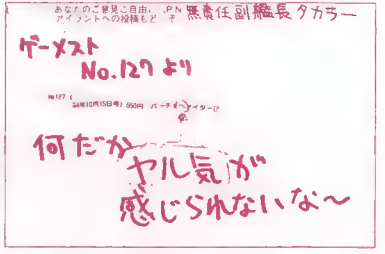 あなたのご意見ご自由、 PN 無責任副艦長タカラー
アイラントへの投稿もど そ
ゲーメスト
No.127より
No.127 (
94年10月15日号) 550円 バーチャファイター2
何だか
ヤル気が
感じられないな〜